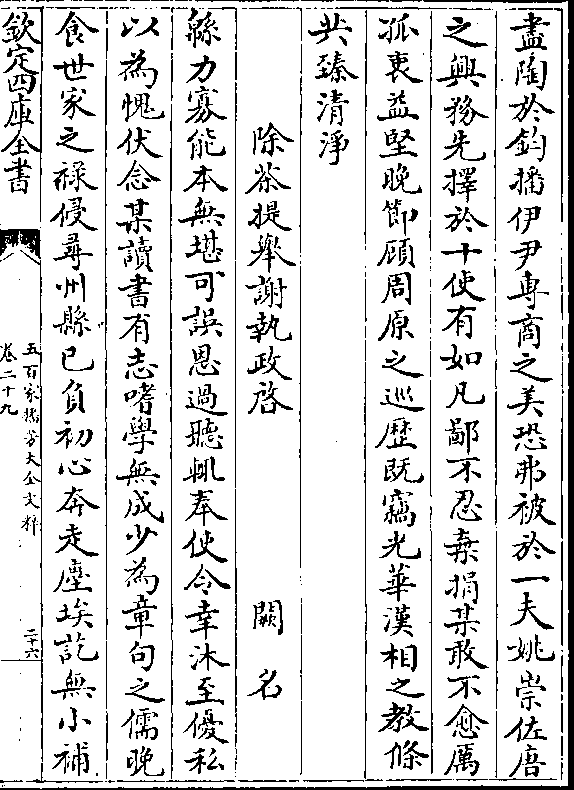 盡陶於鈞播伊尹專商之美恐弗被於一夫姚崇佐唐
之興務先擇於十使有如凡鄙不忍棄捐某敢不愈厲
孤衷益堅晚節顧周原之巡歷既竊光華漢相之教條
共臻清淨
除茶提舉謝執政啓 闕名
緜力寡能本無堪可誤恩過聽輒奉使令幸沐至優私
以為愧伏念某讀書有志嗜學無成少為章句之儒晚
食世家之禄侵尋州縣已負初心奔走塵埃訖無小補
欽定四庫全書
五百家播芳大全文粹
卷二十九
二十六